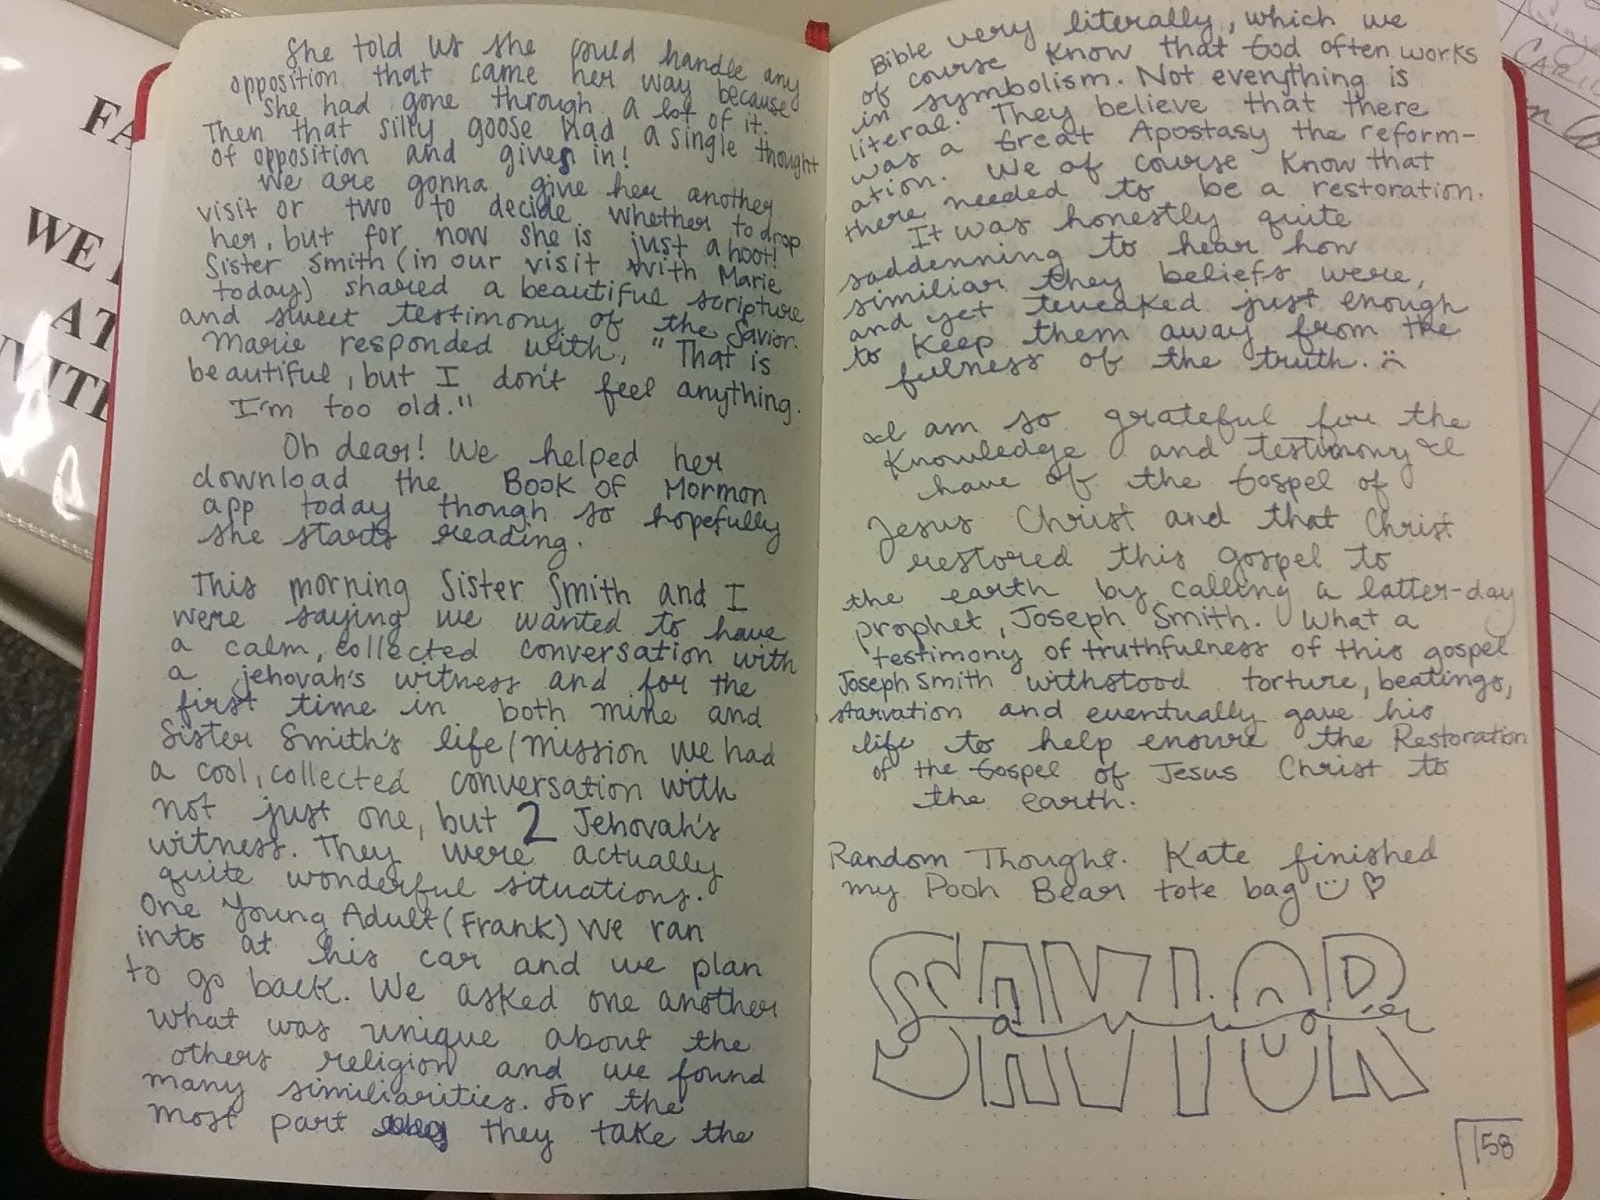 She told us she could handle any
opposition that came her way because
she had gone through a lot of it.
Then that silly goose had a single thought
of opposition and gives in!
We are gonna give her another
visit or two to decide whether to drop
her, but for now she is just a hoot!
Sister Smith (in our visit with Marie
today) shared a beautiful scripture
and sweet testimony of the Savior.
Marie responded with, "That is
beautiful, but I don't feel anything.
I'm too old."
Oh dear! We helped her
download the Book of Mormon
app today though so hopefully
she starts reading.
This morning Sister Smith and I
were saying we wanted to have
a calm, collected conversation with
a jehovah's witness and for the
first time in both mine and
Sister Smith's life/mission we had
a cool, collected conversation with
not just one, but 2 Jehovah's
witness. They were actually
quite wonderful situations.
One Young Adult (Frank) we ran
into at his car and we plan
to go back. We asked one another
what was unique about the
others religion and we found
many similiarities. For the
most part they take the
Bible very literally, which we
of course know that God often works
in symbolism. Not everything is
literal. They believe that there
was a Great Apostasy the reform-
ation. We of course know that
there needed to be a restoration.
It was honestly quite
saddenning to hear how
similiar they beliefs were,
and yet teweaked just enough
to keep them away from the
fulness of the truth. :(
I am so grateful for the
knowledge and testimony I
have of the Gospel of
Jesus Christ and that Christ
restored this gospel to
the earth by calling a latter-day
prophet, Joseph Smith. What a
testimony of truthfulness of this gospel
Joseph Smith withstood torture, beatings,
starvation and eventually gave his
life to help ensure the Restoration
of the Gospel of Jesus Christ to
the earth.
Random Thought. Kate finished
my Pooh Bear tote bag :) ♡
SAVIOR
Savior
158
FA
WE
AT
WITH
CARII